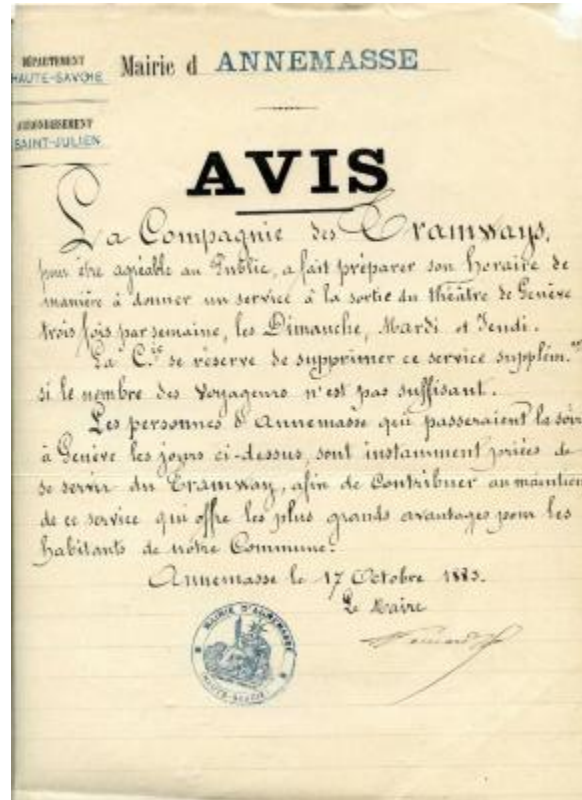 DÉPARTEMENT
HAUTE-SAVOIE
Mairie d ANNEMASSE
ARRONDISSEMENT
SAINT-JULIEN
AVIS
La Compagnie des Tramways,
pour être agréable au Public, a fait préparer son horaire de
manière à donner un service à la sortie du théâtre de Genève
trois fois par semaine, les Dimanche, Mardi et Jeudi.
La Cie se réserve de supprimer ce service supplém.re
si le nombre des Voyageurs n'est pas suffisant.
Les personnes d'Annemasse qui passeraient la soirée
à Genève les jours ci-dessus sont instamment priées de
se servir du Tramway, afin de Contribuer au maintien
de ce service qui offre les plus grands avantages pour les
habitants de notre Commune.
Annemasse le 17 Octobre 1883.
Le Maire
MAIRIE D'ANNEMASSE
HAUTE-SAVOIE